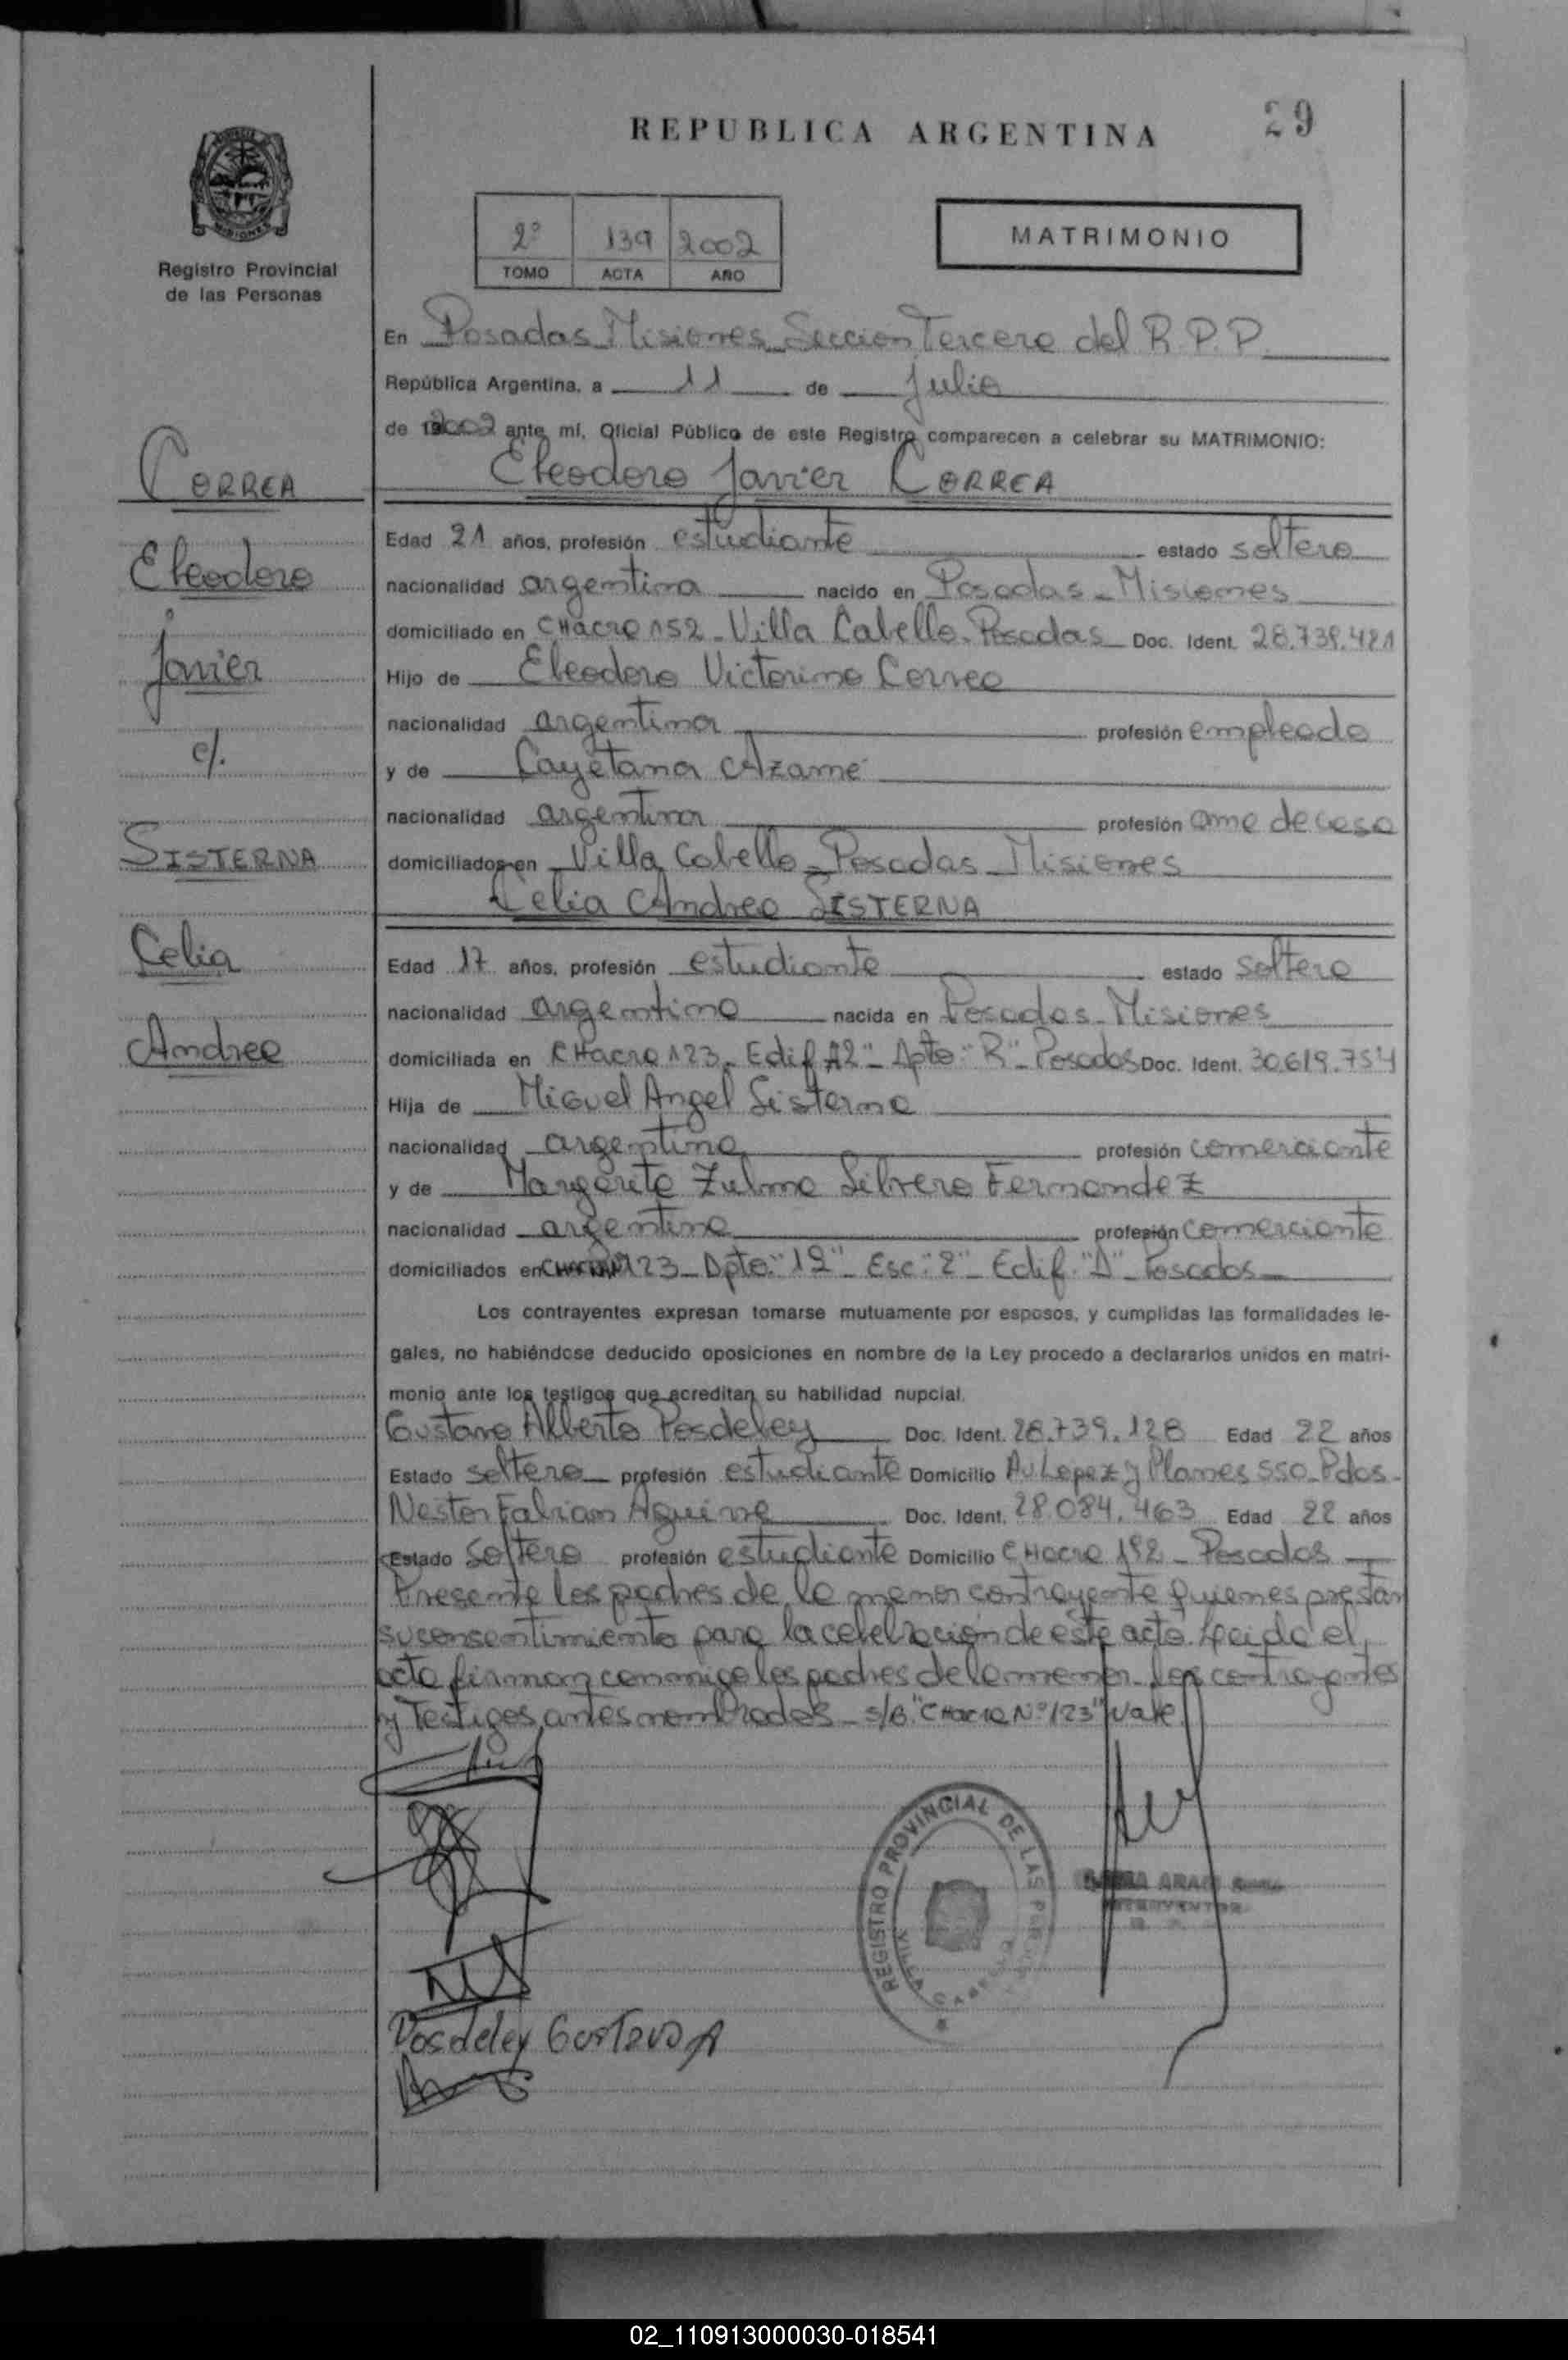 REPUBLICA ARGENTINA
29
MISIONES
Registro Provincial
de las Personas
2º 139 2002
TOMO ACTA AÑO
MATRIMONIO
En Posadas Misiones Seccion Tercera del R.P.P.
República Argentina, a 11 de Julio
de 2002 ante mí, Oficial Público de este Registro comparecen a celebrar su MATRIMONIO:
Eleodoro Javier CORREA
Edad 21 años, profesión estudiante estado soltero
nacionalidad argentina nacido en Posadas - Misiones
domiciliado en CHacra 152 - Villa Cabello - Posadas Doc. Ident. 28.739.481
Hijo de Eleodoro Victorino Correa
nacionalidad argentina profesión empleado
y de Cayetana Azame
nacionalidad argentina profesión ama de casa
domiciliados en Villa Cabello - Posadas - Misiones
Celia Andrea SISTERNA
Edad 17 años, profesión estudiante estado soltera
nacionalidad argentina nacida en Posadas - Misiones
domiciliada en CHacra 123 - Edif A2" - Dpto "R" - Posadas Doc. Ident. 30.619.754
Hija de Miguel Angel Sisterna
nacionalidad argentina profesión comerciante
y de Margarita Zulma Silvero Fernandez
nacionalidad argentina profesión comerciante
domiciliados en 123 - Dpto: "12" - Esc: "2" - Edif. "A" - Posadas
Los contrayentes expresan tomarse mutuamente por esposos, y cumplidas las formalidades le-
gales, no habiéndose deducido oposiciones en nombre de la Ley procedo a declararlos unidos en matri-
monio ante los testigos que acreditan su habilidad nupcial.
Gustavo Alberto Posdeley Doc. Ident. 28.739.128 Edad 22 años
Estado soltero profesión estudiante Domicilio Av Lopez y Planes 550 - Pdas -
Nestor Fabian Aguirre Doc. Ident. 28.084.463 Edad 22 años
Estado Soltero profesión estudiante Domicilio CHacra 192 - Posadas
Presente los padres de la menor contrayente quienes prestan
su consentimiento para la celebracion de este acto. Leido el
acta firman conmigo los padres de la menor - los contrayentes
y Testigos antes nombrados - s/B. "CHacra Nº 123" Vale.
CORREA
Eleodoro
Javier
c/.
SISTERNA
Celia
Andrea
REGISTRO PROVINCIAL DE LAS
VILLA CABELLO
Posdeley Gustavo A
02_110913000030-018541